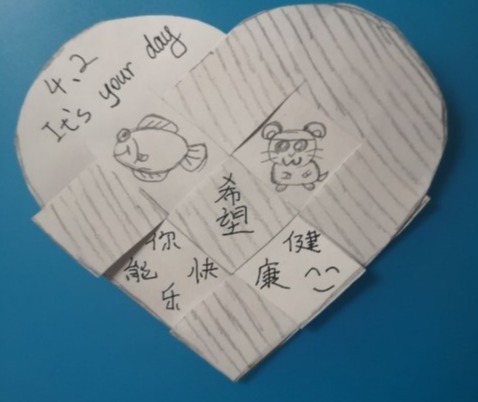 4.2
It's your day
希望
你
能 快
乐
健
康